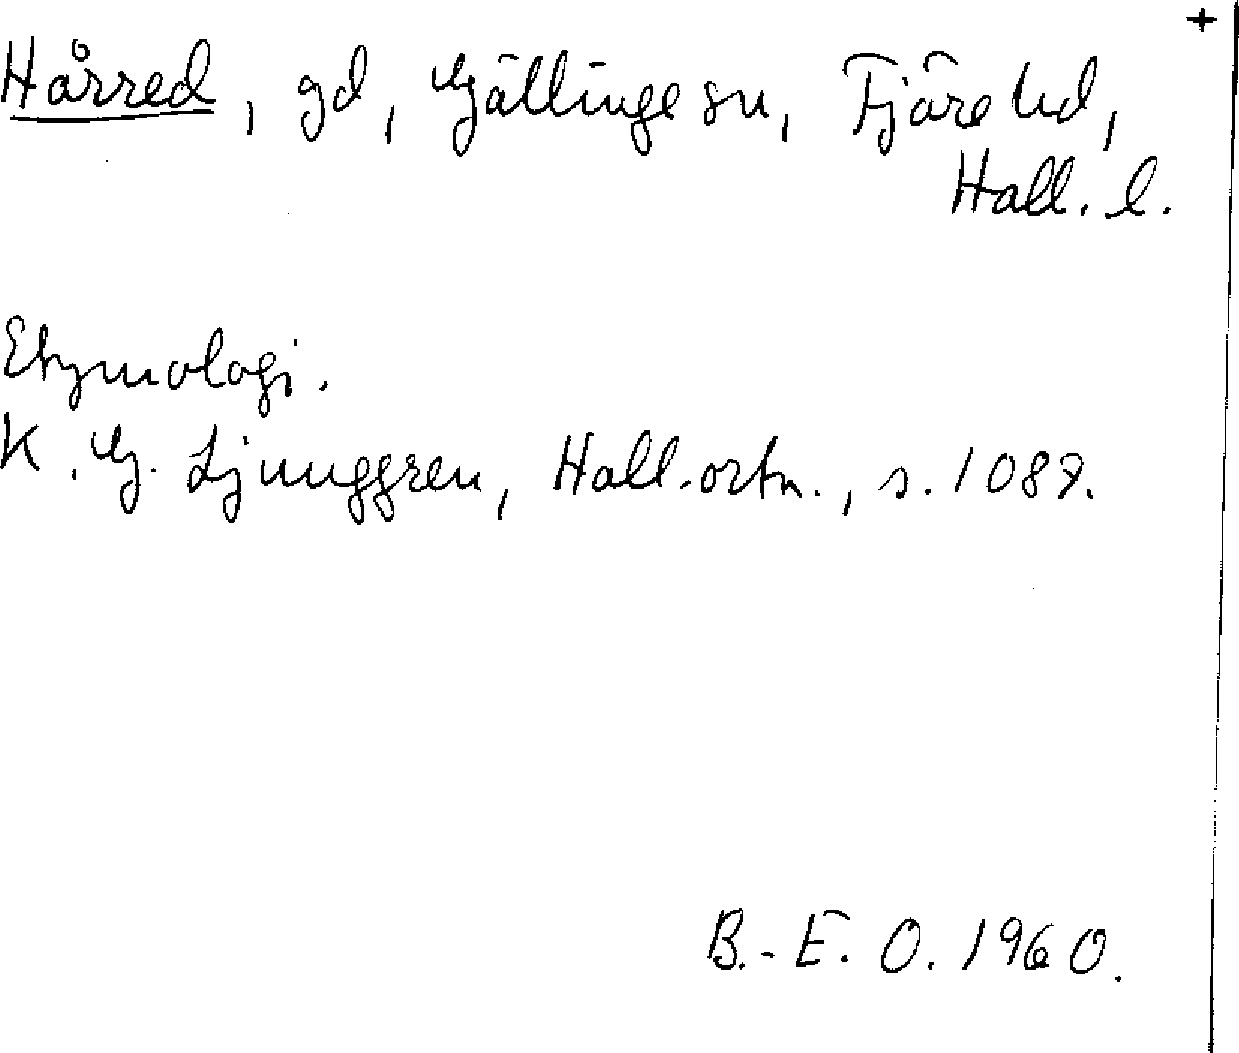 +
Hårred, gd, Gällinge sn, Fjäre hd,
Hall. l.
Etymologi.
K. G. Ljunggren, Hall. ortn., s. 1089.
B.-E. O. 1960.